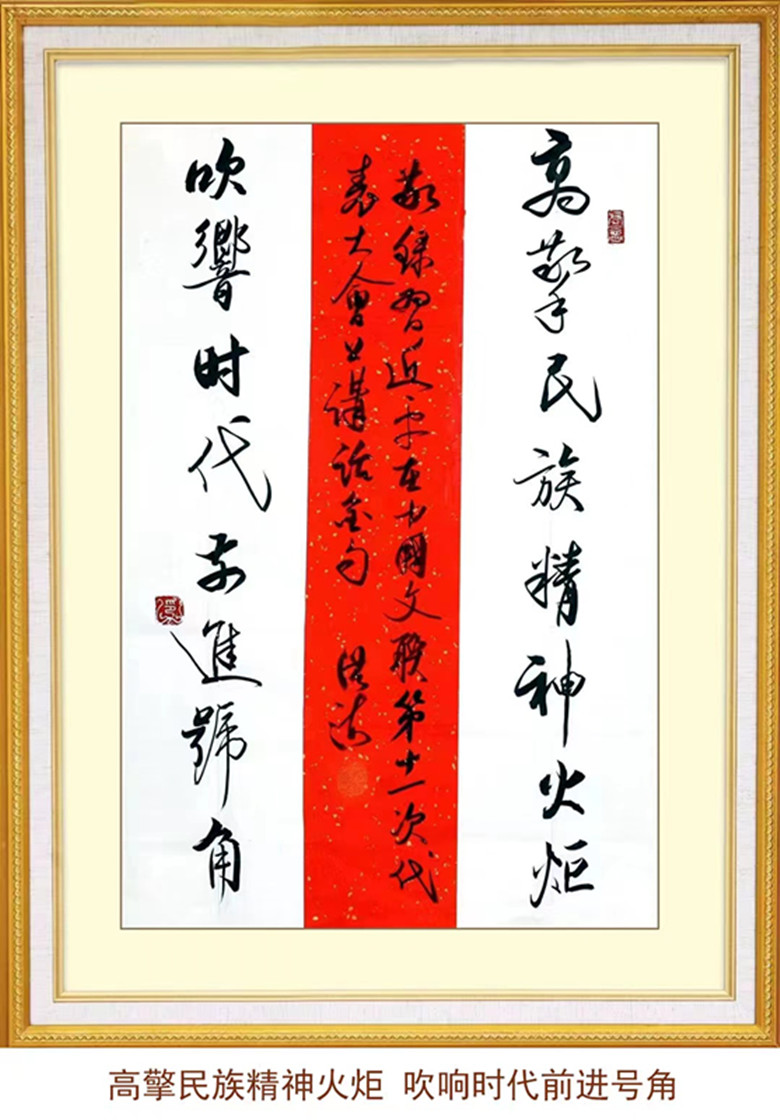 高擎民族精神火炬
敬錄習近平在中國文联第十一次代
表大會上講話金句
吹響时代前進號角
高擎民族精神火炬 吹响时代前进号角